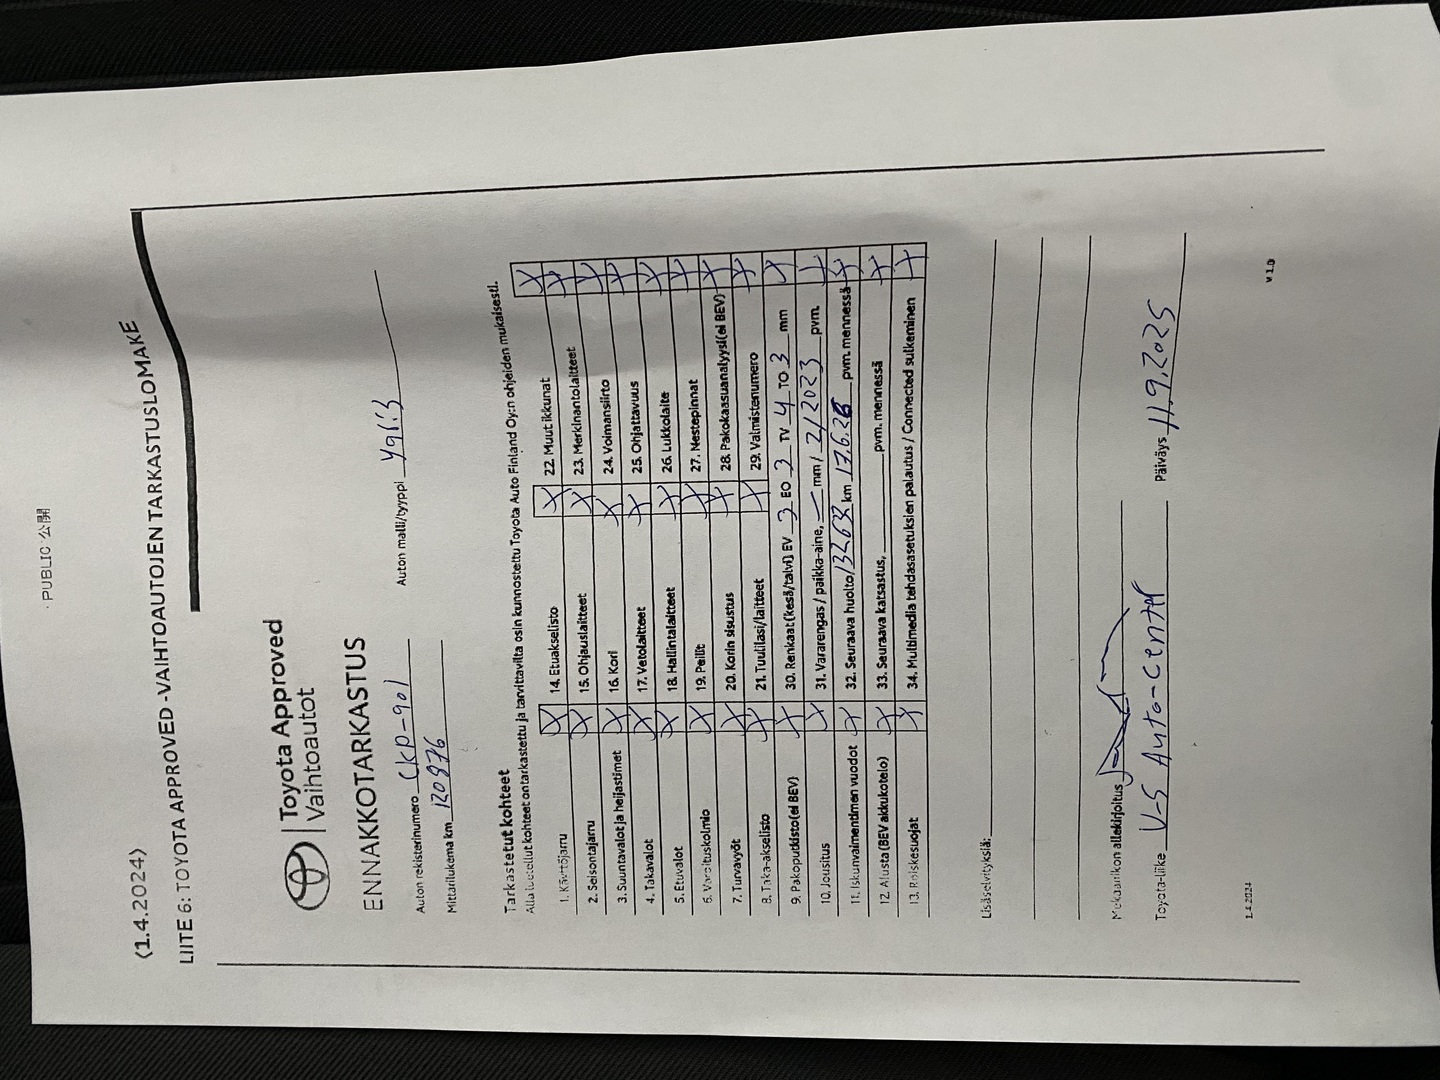 PUBLIC 公開
(1.4.2024)
LIITE 6: TOYOTA APPROVED -VAIHTOAUTOJEN TARKASTUSLOMAKE
Toyota Approved
Vaihtoautot
ENNAKKOTARKASTUS
Auton rekisterinumero CKP-901 Auton malli/tyyppi Yaris
Mittarilukema km 120976
Tarkastetut kohteet
Alla luetellut kohteet on tarkastettu ja tarvittavilta osin kunnostettu Toyota Auto Finland Oy:n ohjeiden mukaisesti.
1. Käyttöjarru X 14. Etuakselisto X 22 Muut ikkunat X
2. Seisontajarru X 15. Ohjauslaitteet X 23. Merkinantolaitteet X
3. Suuntavalot ja heijastimet X 16. Kori X 24. Voimansiirto X
4. Takavalot X 17. Vetolaitteet X 25. Ohjattavuus X
5. Etuvalot X 18. Hallintalaitteet X 26. Lukkolaite X
6. Varoituskolmio X 19. Peilit X 27. Nestepinnat X
7. Turvavyöt X 20. Korin sisustus X 28. Pakokaasuanalyysi(ei BEV) X
8. Taka-akselisto X 21. Tuulilasi/laitteet X 29. Valmistenumero X
9. Pakoputkisto(ei BEV) X 30. Renkaat(kesä/talvi) EV 3 EO 3 TV 4 TO 3 mm X
10. Jousitus X 31. Vararengas / paikka-aine, — mm / 2/2023 pvm. X
11. Iskunvaimentimen vuodot X 32. Seuraava huolto/ km 17.6.26 pvm. mennessä X
12 Alusta(BEV akkukotelo) X 33. Seuraava katsastus, pvm. mennessä X
13. Roiskesuojat X 34. Multimedia tehdasasetuksien palautus / Connected sulkeminen X
Lisäselvityksiä:
Mekaanikon allekirjoitus
Toyota-liike V-S Auto-Center Päiväys 11.9.2025
1.4.2024 v 1.0